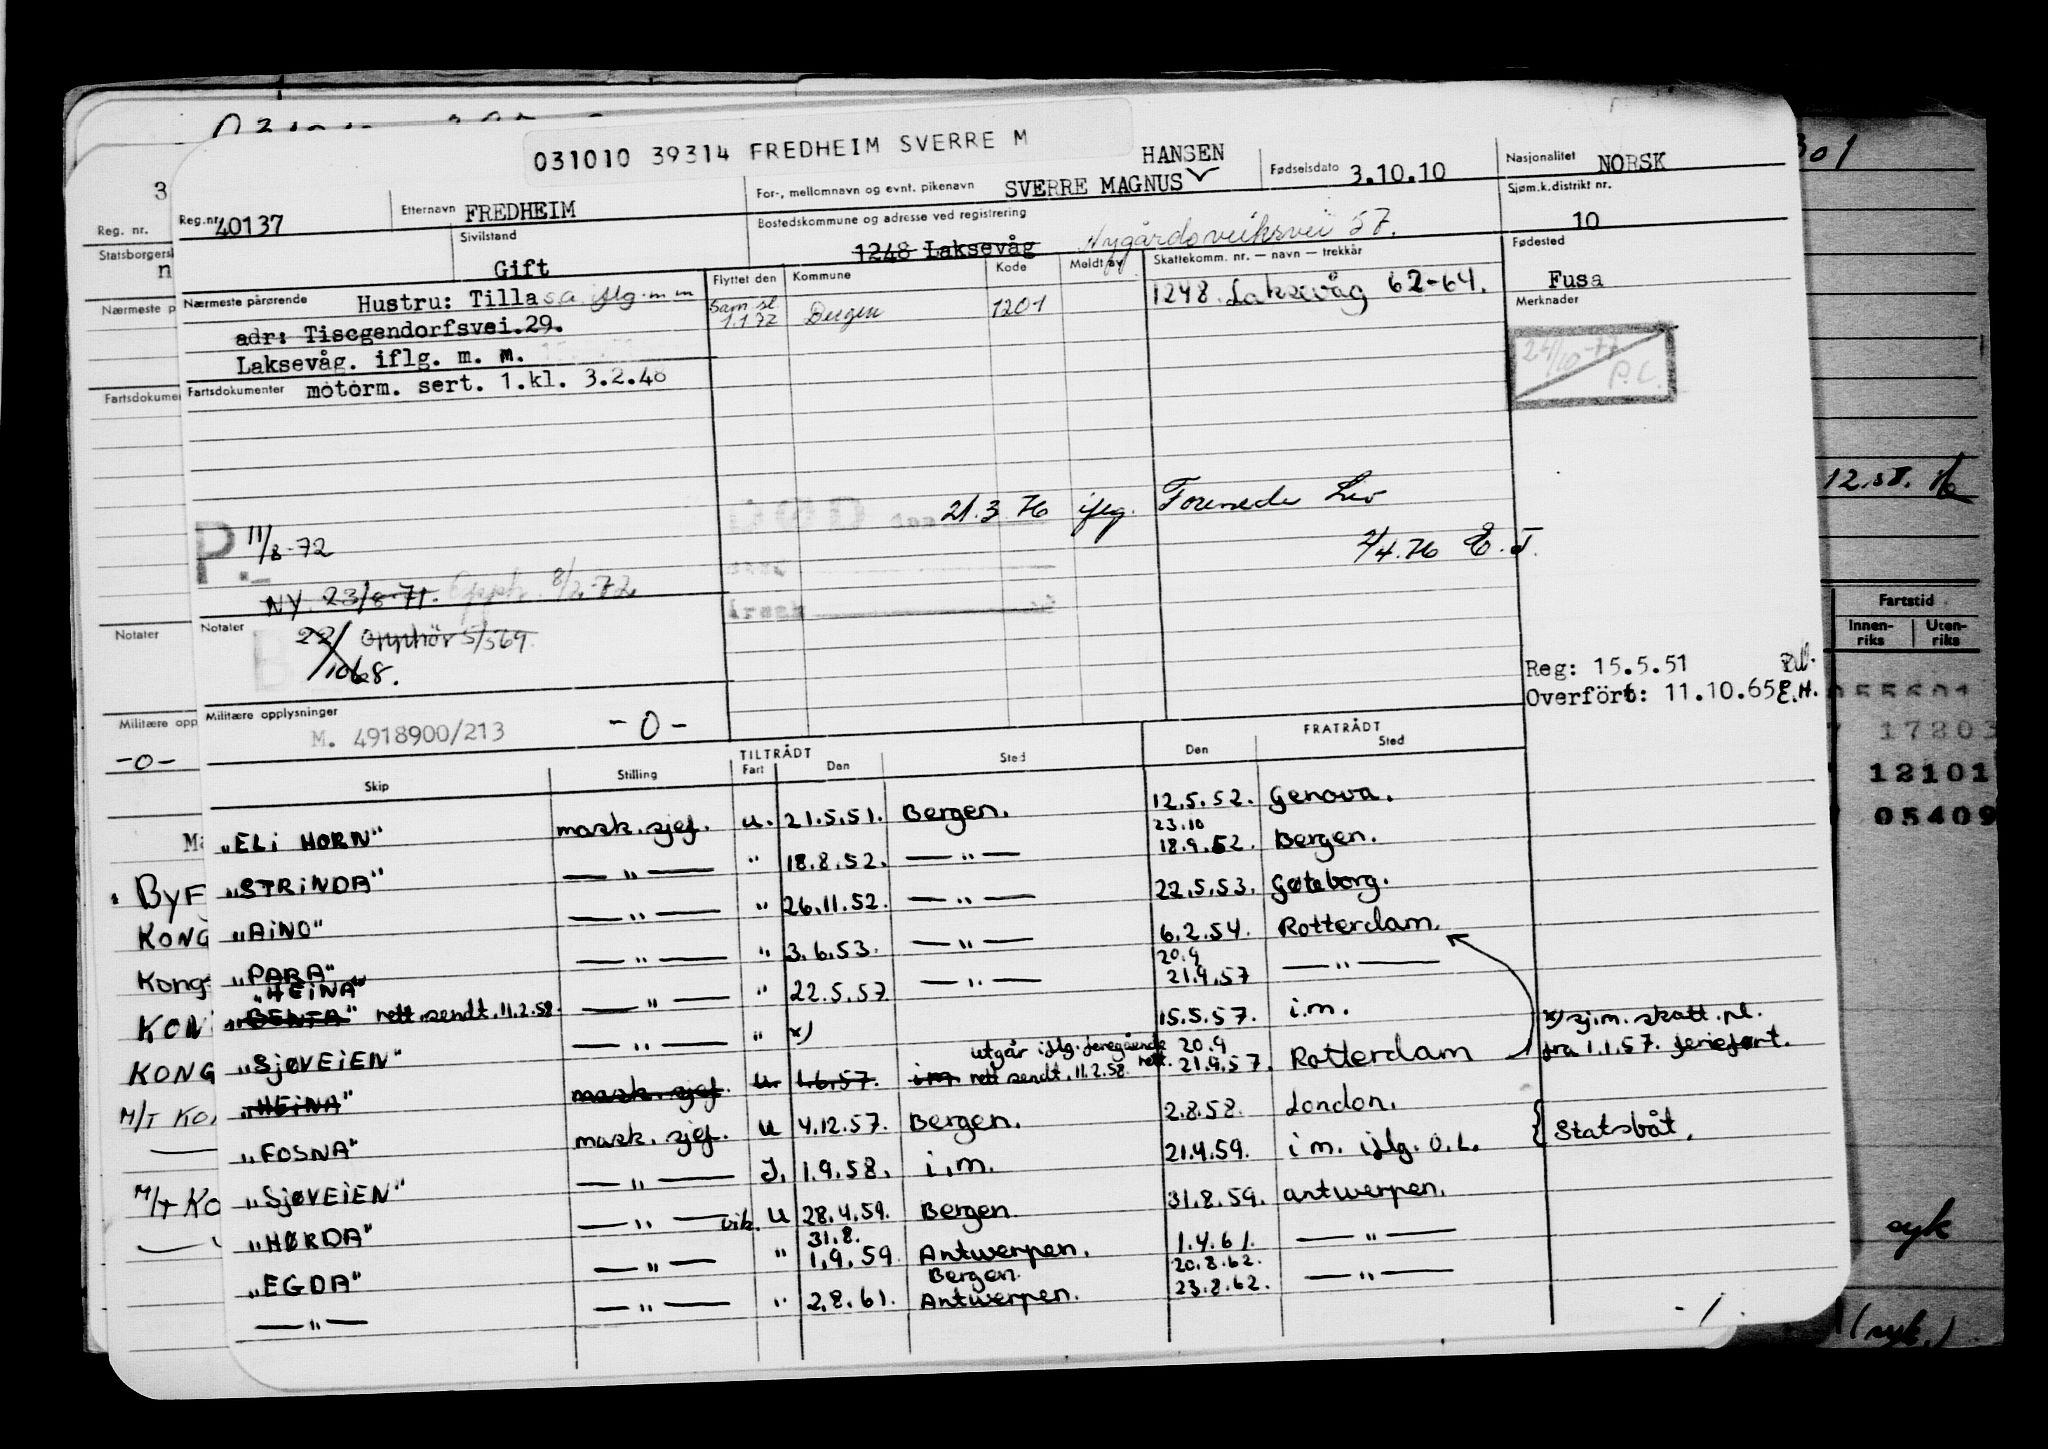 031010 39314 FREDHEIM SVERRE M
301
Reg.nr. 40137
Etternavn FREDHEIM
For-, mellomnavn og evnt. pikenavn SVERRE MAGNUS HANSEN
Fødselsdato 3.10.10
Nasjonalitet NORSK
Sivilstand Gift
Bostedskommune og adresse ved registrering 1248 Laksevåg Nygårdsviksvei 57.
Sjøm.k.distrikt nr. 10
Nærmeste pårørende Hustru: Tilla s.a. iflg. m m
adr: Tiscgendorfsvei.29.
Laksevåg. iflg. m. m.
Flyttet den Kommune Kode Meldt av
Sam.sl. 1.1.72 Bergen 1201
Skattekomm. nr. — navn — trekkår
1248. Laksevåg 62-64.
Fødested Fusa
Merknader
24/10-77 P.C.
Fartsdokumenter motorm. sert. 1.kl. 3.2.48
DØD 21.3 76 iflg. Forenede Liv
2/4.76 E.T.
Årsak
P. 11/8-72
NY. 23/8-71. Opph. 8/2-72
Notater 22/10 68. Opphör 5/569.
Reg: 15.5.51
Overført: 11.10.65 E.H.
Militære opplysninger M. 4918900/213 -0-
TILTRÅDT FRATRÅDT
Skip Stilling Fart Den Sted Den Sted
„ELI HORN" mask.sjef. u. 21.5.51. Bergen. 12.5.52. Genova.
„STRINDA" — " — " 18.8.52. — " — 23.10 18.9.52. Bergen.
„AINO" — " — " 26.11.52. — " — 22.5.53. Gøteborg.
„PARA" — " — " 3.6.53. — " — 6.2.54. Rotterdam.
„HEINA"
„BENTA" rett.sendt.11.2.58. — " — " 22.5.57. — " — 20.9 21.9.57 — " —
„SJØVEIEN" — " — " x) 15.5.57. i.m. x) sj.m. skatt. pl. fra 1.1.57. feriefart.
„HEINA" mask.sjef. u. 1.6.57. i m utgår iflg. foregående rett sendt. 11.2.58. rett. 20.9 21.9.57. Rotterdam
„FOSNA" mask. sjef. u 4.12.57. Bergen. 2.8.58. London.
„SJØVEIEN" — " — J. 1.9.58. i.m. 21.4.59. i m. iflg. O.L. { Statsbåt.
„HØRDA" — " — vik. u 28.4.59. Bergen 31.8.59. Antwerpen.
„EGDA" — " — " 31.8. 1.9.59. Antwerpen. 1.4.61. — " —
— " — — " — " 2.8.61. Bergen. Antwerpen. 20.8.62. 23.8.62. — " —
-1.
Reg. nr.
Statsborgersk
Nærmeste p
Fartsdokume
Notater
Militære opp
-0-
BYF
KONG
Kong
KONG
M/T KO
M/T KO
Fartstid
Innen-riks Uten-riks
055601
17203
12101
05409
syk
(syk.)